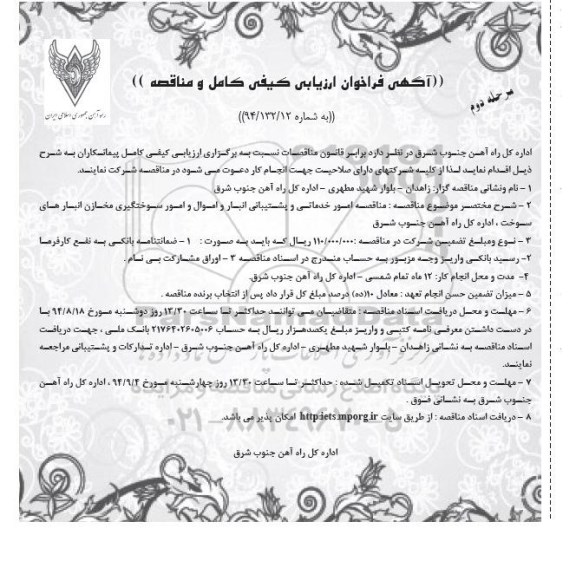 ((آگهی فراخوان ارزیابی کیفی کامل و مناقصه ))
مرحله دوم
((به شماره ۹۴/۱۳۲/۱۲))
راه آهن جمهوری اسلامی ایران
اداره کل راه آهن جنوب شرق در نظر دارد برابر قانون مناقصات نسبت به برگزاری ارزیابی کیفی کامل پیمانکاران به شرح
ذیل اقدام نماید لذا از کلیه شرکتهای دارای صلاحیت جهت انجام کار دعوت می شود در مناقصه شرکت نمایند.
۱ - نام ونشانی مناقصه گزار: زاهدان - بلوار شهید مطهری - اداره کل راه آهن جنوب شرق
۲ - شرح مختصر موضوع مناقصه : مناقصه امور خدماتی و پشتیبانی انبار و اموال و امور سوختگیری مخازن انبار های
سوخت ، اداره کل راه آهن جنوب شرق
۳ - نوع ومبلغ تضمین شرکت در مناقصه :۱۱۰/۰۰۰/۰۰۰ ریال که باید به صورت : ۱ - ضمانتنامه بانکی به نفع کارفرما
۲- رسید بانکی واریز وجه مزبور به حساب مندرج در اسناد مناقصه ۳ - اوراق مشارکت بی نام .
۴- مدت و محل انجام کار: ۱۲ ماه تمام شمسی - اداره کل راه آهن جنوب شرق.
۵ - میزان تضمین حسن انجام تعهد : معادل ۱۰(ده) درصد مبلغ کل قرار داد پس از انتخاب برنده مناقصه .
۶ - مهلت و محل دریافت اسناد مناقصه : متقاضیان می توانند حداکثر تا ساعت ۱۳/۳۰ روز دوشنبه مورخ ۹۴/۸/۱۸ با
در دست داشتن معرفی نامه کتبی و واریز مبلغ یکصدهزار ریال به حساب ۲۱۷۶۴۰۲۶۰۵۰۰۶ بانک ملی ، جهت دریافت
اسناد مناقصه به نشانی زاهدان - بلوار شهید مطهری - اداره کل راه آهن جنوب شرق - اداره تدارکات و پشتیبانی مراجعه
نمایند.
۷ - مهلت و محل تحویل اسناد تکمیل شده : حداکثر تا ساعت ۱۳/۳۰ روز چهارشنبه مورخ ۹۴/۹/۴ ، اداره کل راه آهن
جنوب شرق به نشانی فوق .
۸ - دریافت اسناد مناقصه : از طریق سایت http:iets.mporg.ir امکان پذیر می باشد.
اداره کل راه آهن جنوب شرق
ParsNamadData